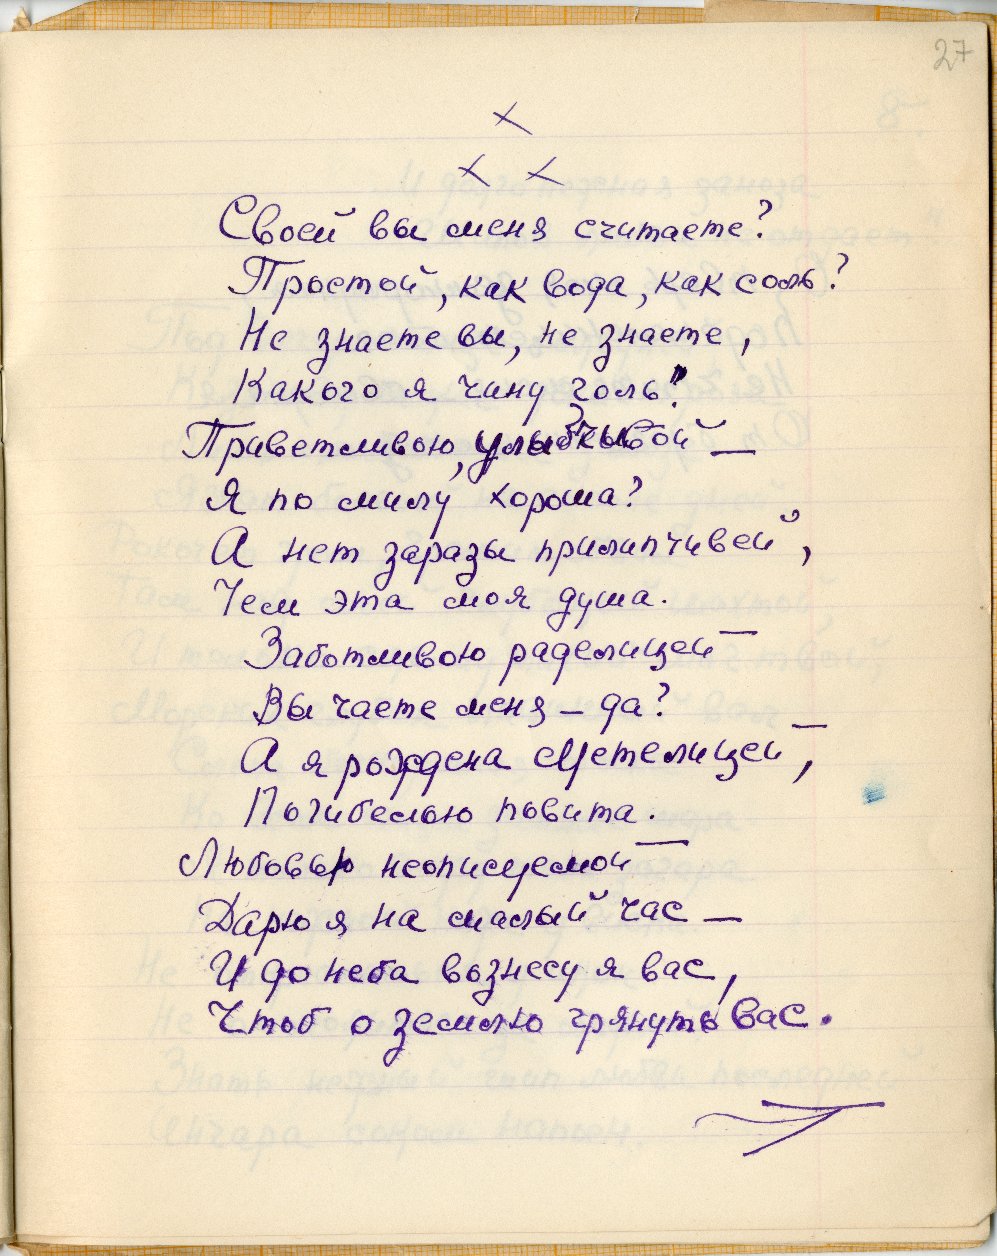 27
х
х х
Своей вы меня считаете?
Простой, как вода, как соль?
Не знаете вы, не знаете,
Какого я чину голь!
Приветливою, улыбчивой —
Я по милу хороша?
А нет заразы прилипчивей,
Чем эта моя душа.
Заботливою раделицей
Вы чаете меня – да?
А я рождена Метелицей,
Погибелью повита.
Любовью неописуемой
Дарю я на малый час —
И до неба вознесу я вас,
Чтоб о землю грянуть вас.